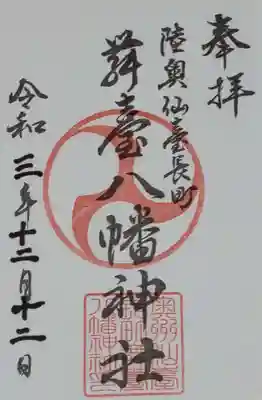 奉拝
陸奥仙臺長町
舞臺八幡神社
令和三年十二月十二日